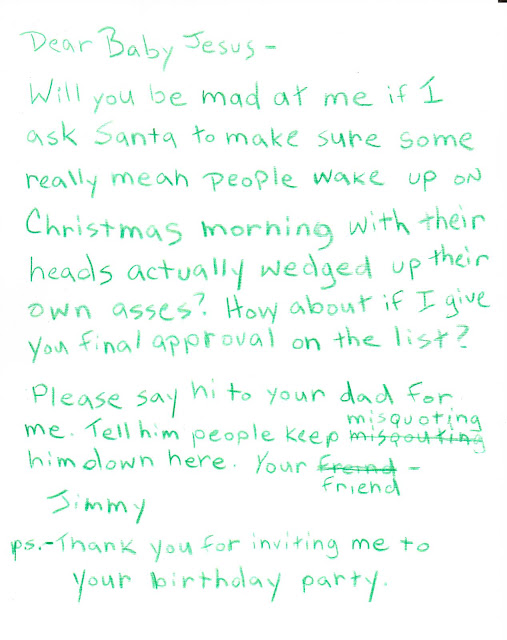 Dear Baby Jesus -
Will you be mad at me if I
ask Santa to make sure some
really mean people wake up on
Christmas morning with their
heads actually wedged up their
own asses? How about if I give
you final approval on the list?
Please say hi to your dad for
me. Tell him people keep misqouting misquoting
him down here. Your Freind friend -
Jimmy
ps.-Thank you for inviting me to
your birthday party.